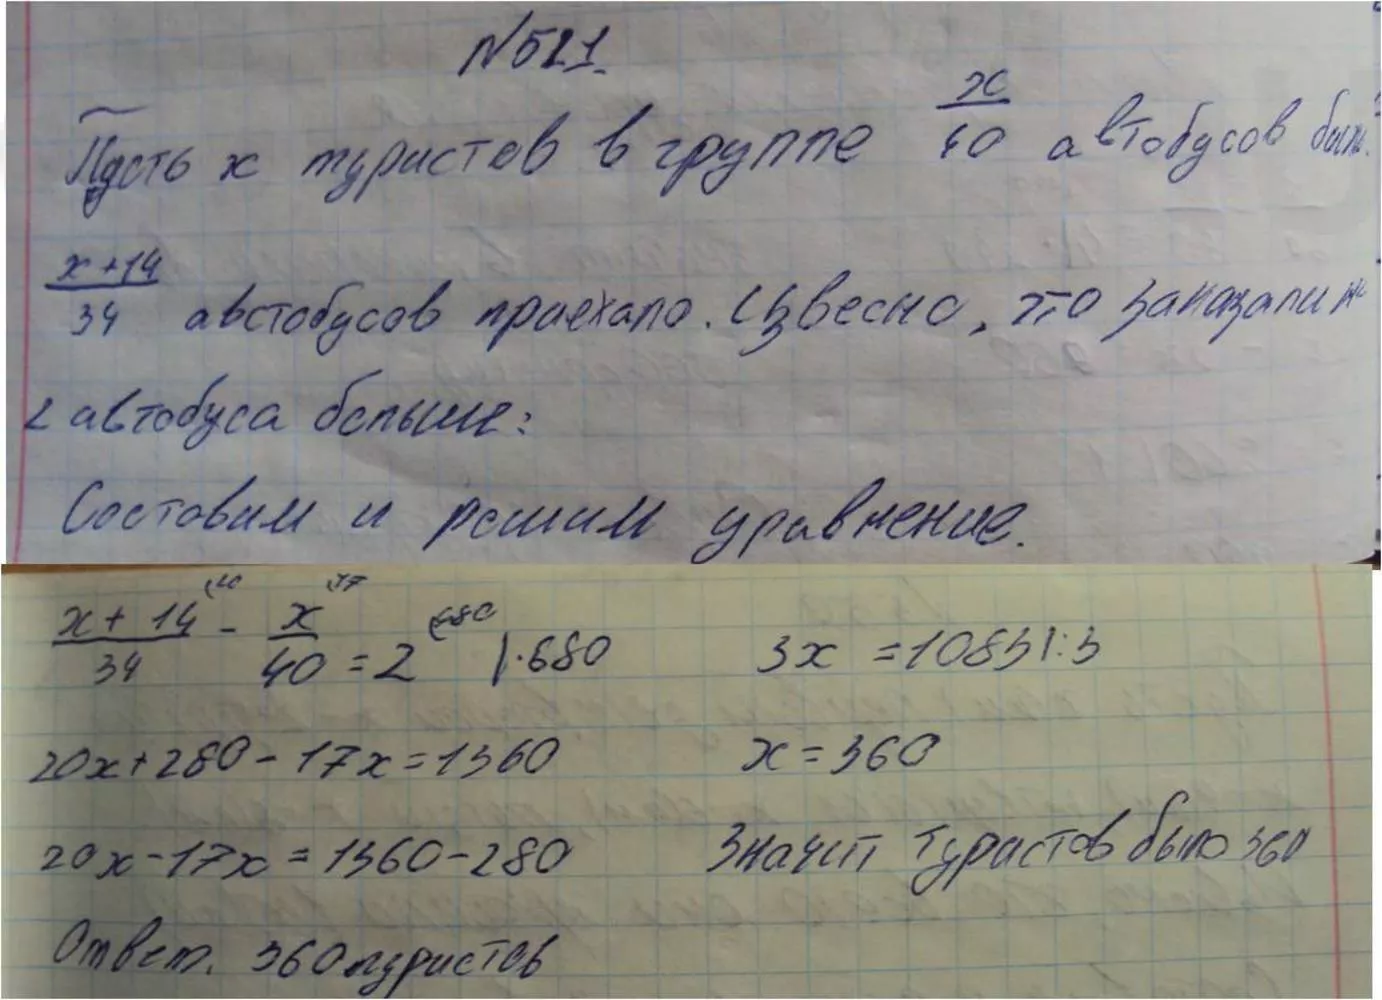 №521.
Пусть х туристов в группе x/40 автобусов было.
x+14/34 автобусов приехало. Извесно, что заказали на
2 автобуса больше:
Составим и решим уравнение.
x+14/34 (20 - x/40 (17 = 2 (680 |·680
20x+280-17x=1360
20x-17x=1360-280
3x =1083|:3
x=360
Значит туристов было 360
Ответ. 360 туристов